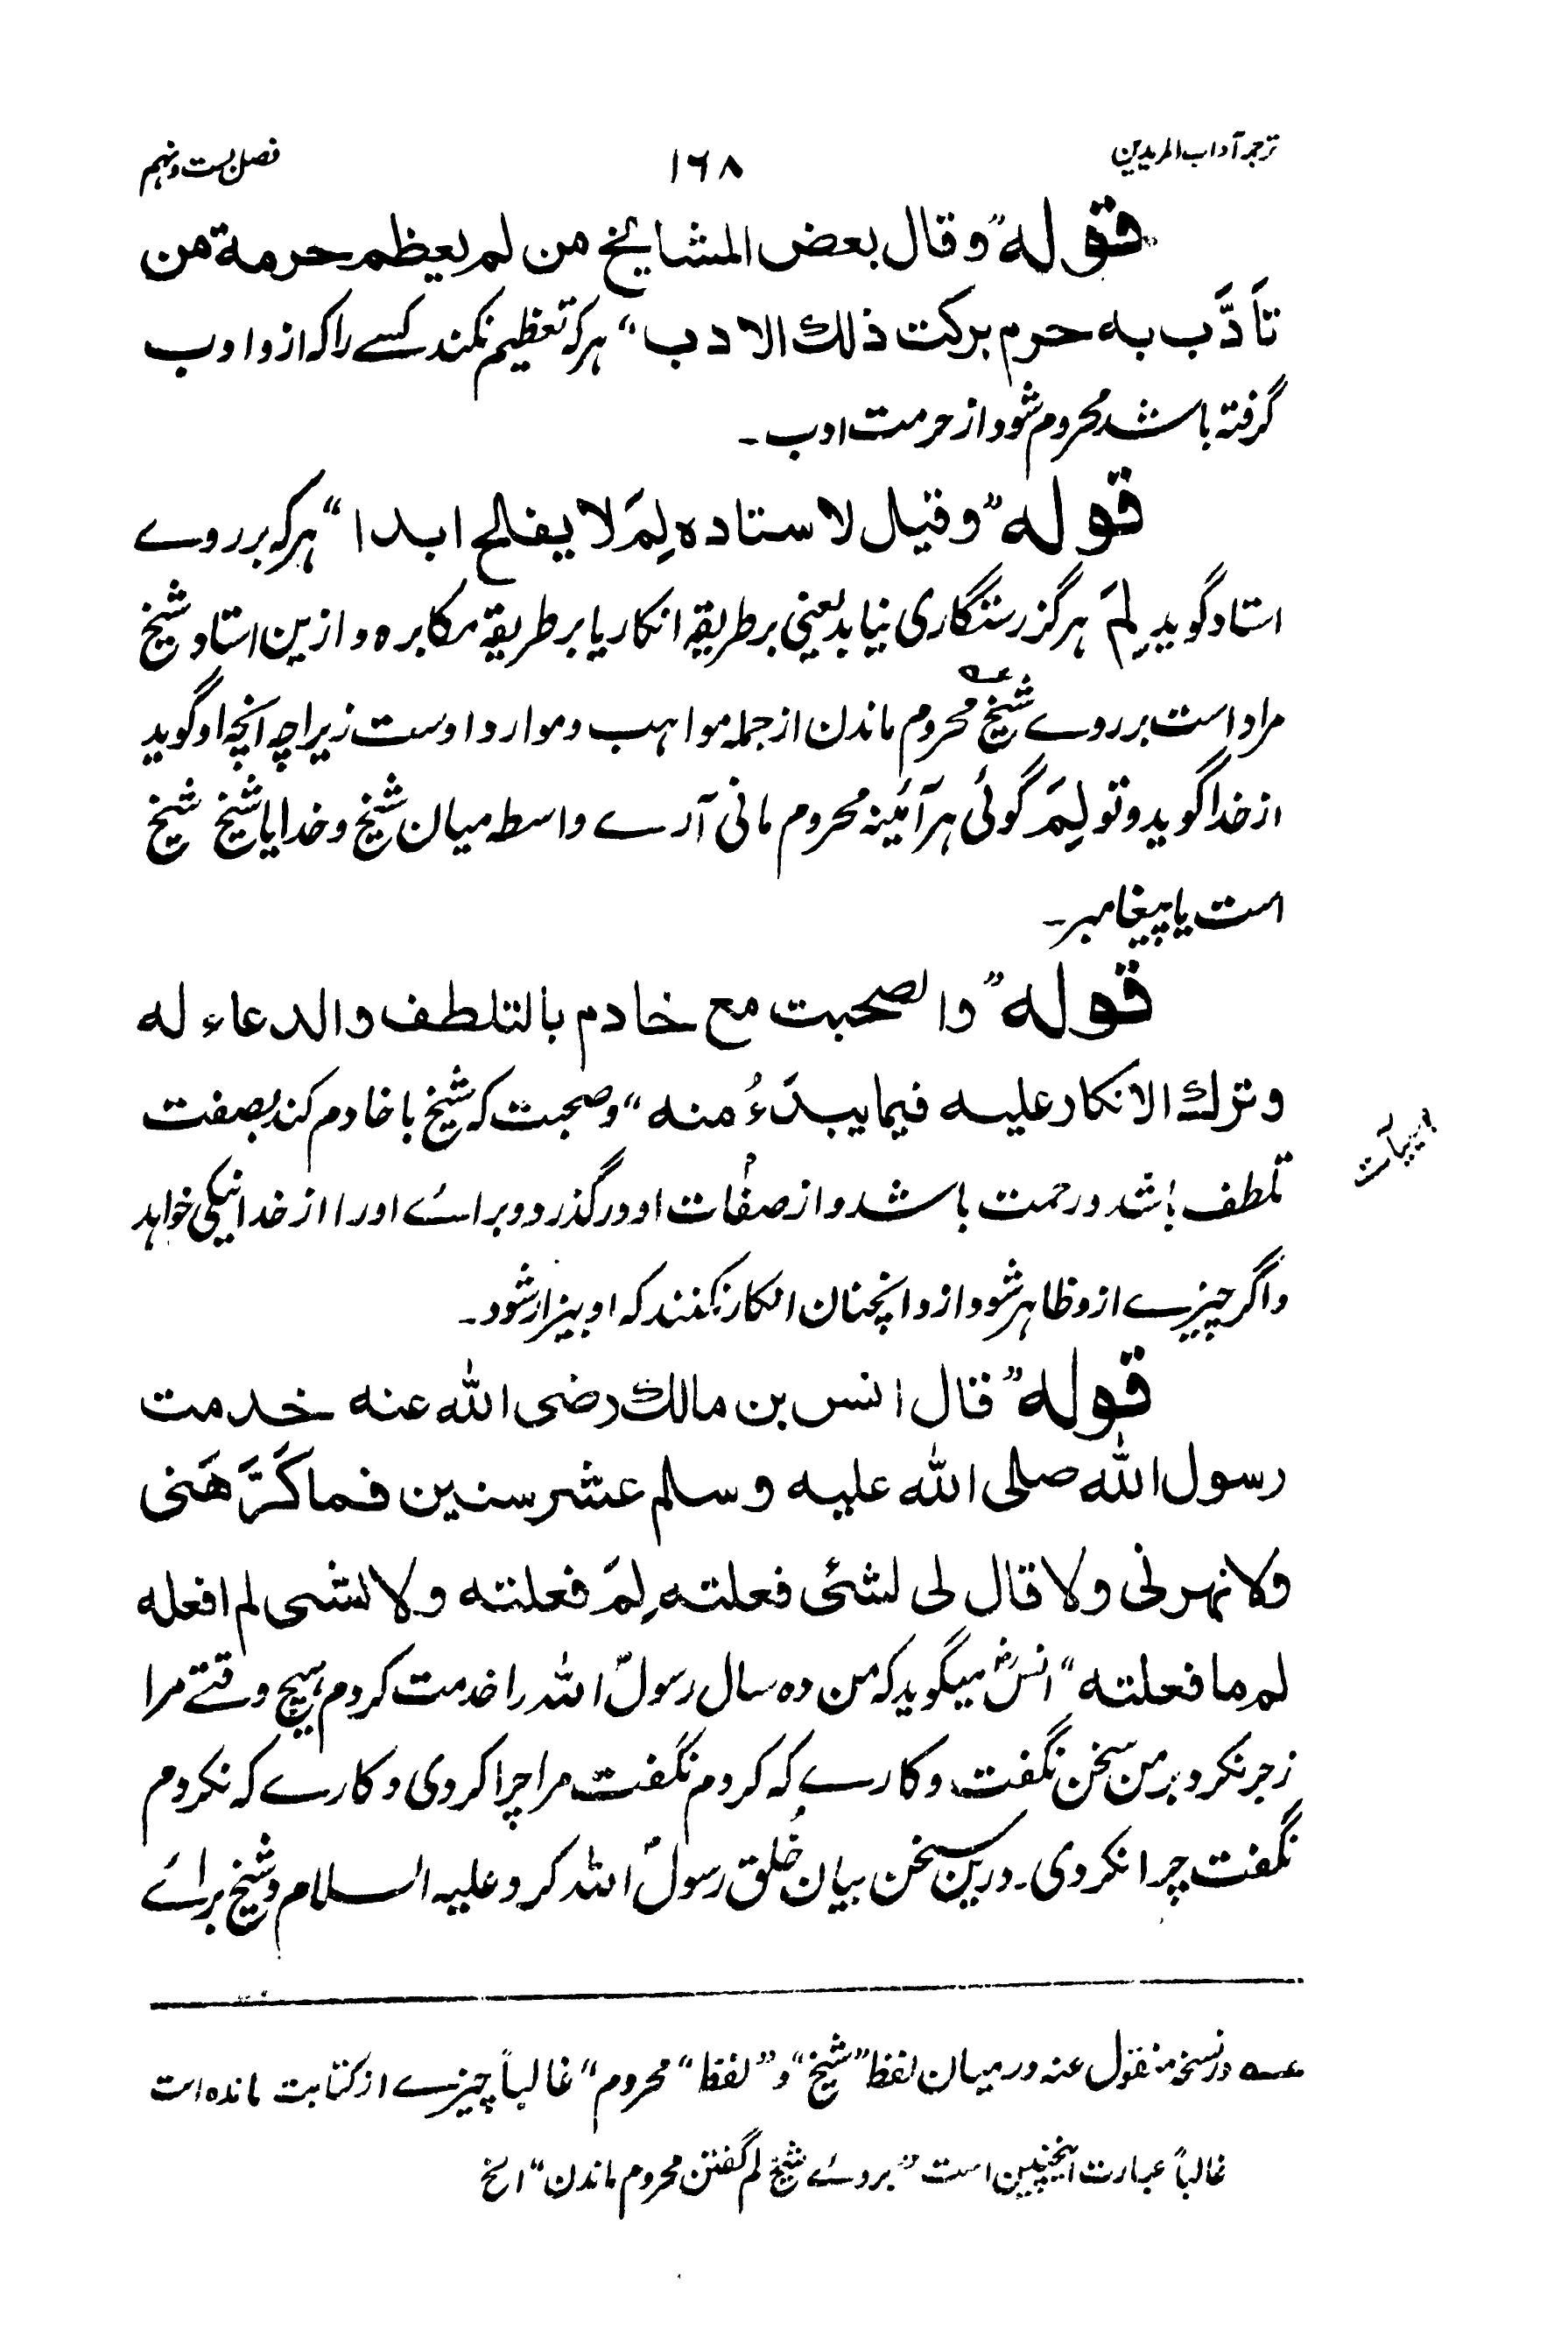 ترجمہ آداب المریدین ۱۶۸ فصل بست و نہم
قوله ”وقال بعض المشایخ من لم یعظم حرمة من
تأدَّب به حرم برکت ذلك الادب“ ہر کہ تعظیم نکند کسے را کہ ازو ادب
گرفتہ باشد محروم شود از حرمت ادب ـ
قوله ”وقیل لاستاده لِمَ لا یفلح ابدا“ ہر کہ بر روے
استاد گوید لِمَ ہرگز رستگاری نیابد یعنی بر طریقہ انکار یا بر طریقہ مکابرہ و ازین استاد شیخ
مراد است بر روے شیخ عــہ محروم ماندن از جملہ مواہب و موارد اوست زیراچہ آنچہ او گوید
از خدا گوید و تو لِمَ گوئی ہر آئینہ محروم مانی آرے واسطہ میان شیخ و خدا یا شیخ شیخ
است یا پیغامبر ـ
قوله ”والصحبت مع خادم بالتلطف والدعاء له
وترك الانكار علیه فیما یبدَءُ منه“ و صحبت کہ شیخ با خادم کند بصفت
تلطف باشد و رحمت باشد و از صفات او در گذرد و براے او را از خدا نیکی خواہد
و اگر چیزے ازو ظاہر شود ازو آنچنان انکار نکنند کہ او بیزار شود ـ
قوله ”قال انس بن مالك رضی الله عنه خدمت
رسول الله صلی الله علیه وسلم عشر سنین فما کَرَّهَنی
ولا نهرنی ولا قال لی لشئی فعلته لِمَ فعلته ولا لشی لم افعله
لم ما فعلته“ انسؓ میگوید کہ من دہ سال رسولؐ اللہ را خدمت کردم ہیچ وقتے مرا
زجر نکرد بر من سخن نگفت و کارے کہ کردم نگفت مرا چرا کردی و کارے کہ نکردم
نگفت چرا نکردی ـ درین سخن بیان خُلق رسولؐ اللہ کرد علیہ السلام و شیخ براے
عــہ در نسخہ منقول عنہ درمیان لفظ ”شیخ“ و ”لفظ“ محروم“ غالباً چیزے از کتابت ماندہ است
غالباً عبارت اینچنین است ”بروے شیخ لم گفتن محروم ماندن“ الخ